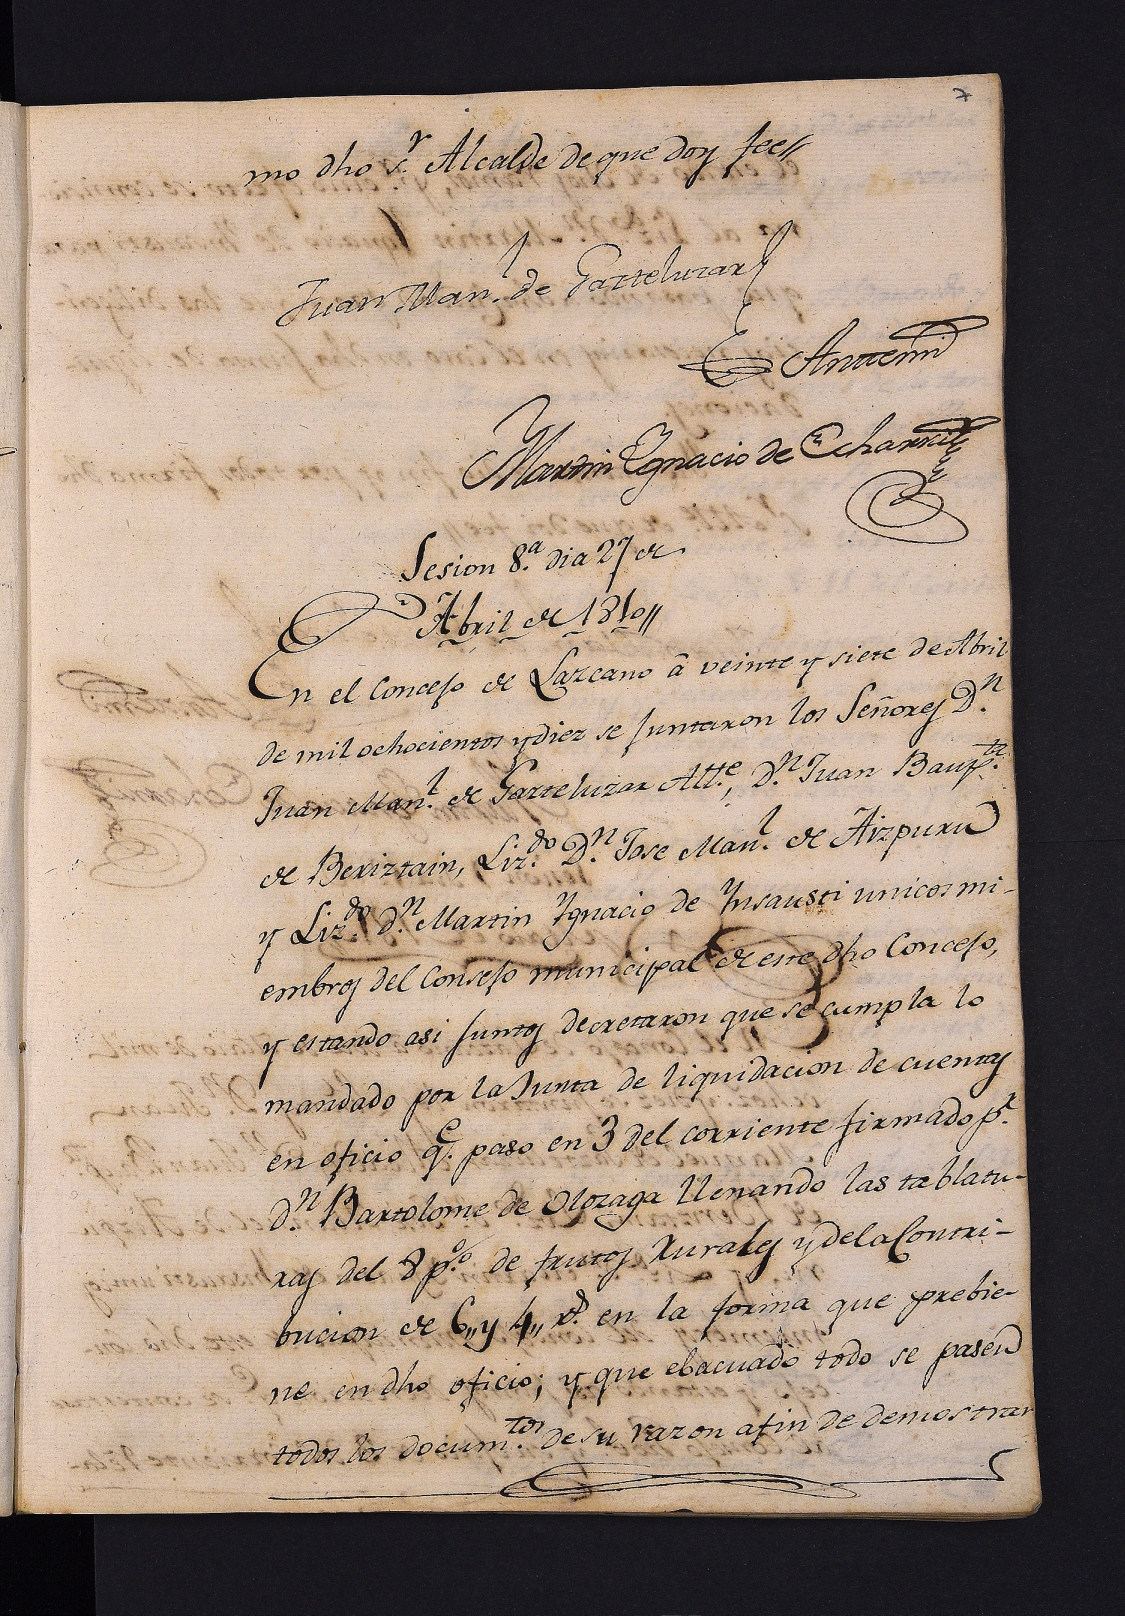 7
mo dho s.r Alcalde de que doy fee//
Juan Man.l de Garteluzar
Antemi
Martin Ygnacio de Echarri
Sesion 8.a dia 27 de
Abril de 1810//
En el Concejo de Lazcano â veinte y siete de Abril
de mil ochocientos y diez se juntaron los Señores D.n
Juan Man.l de Garteluzar Alt.e, D.n Juan Baup.ta
de Beriztain, Liz.do D.n Jose Man.l de Aizpuru
y Liz.do D.n Martin Ygnacio de Ynsausti unicos mi-
embros del Consejo municipal de este dho Concejo,
y estando asi juntos decretaron que se cumpla lo
mandado por la Junta de liquidacion de cuentas
en oficio q.e paso en 3 del corriente firmado p.r
D.n Bartolome de Olozaga llenando las tablatu-
ras del 8 p.% de frutos Rurales y de la Contri-
bucion de 6,, y 4,, r.s en la forma que prebie-
ne en dho oficio; y que ebacuado todo se pasen
todos los docum.tos de su razon afin de demostrar